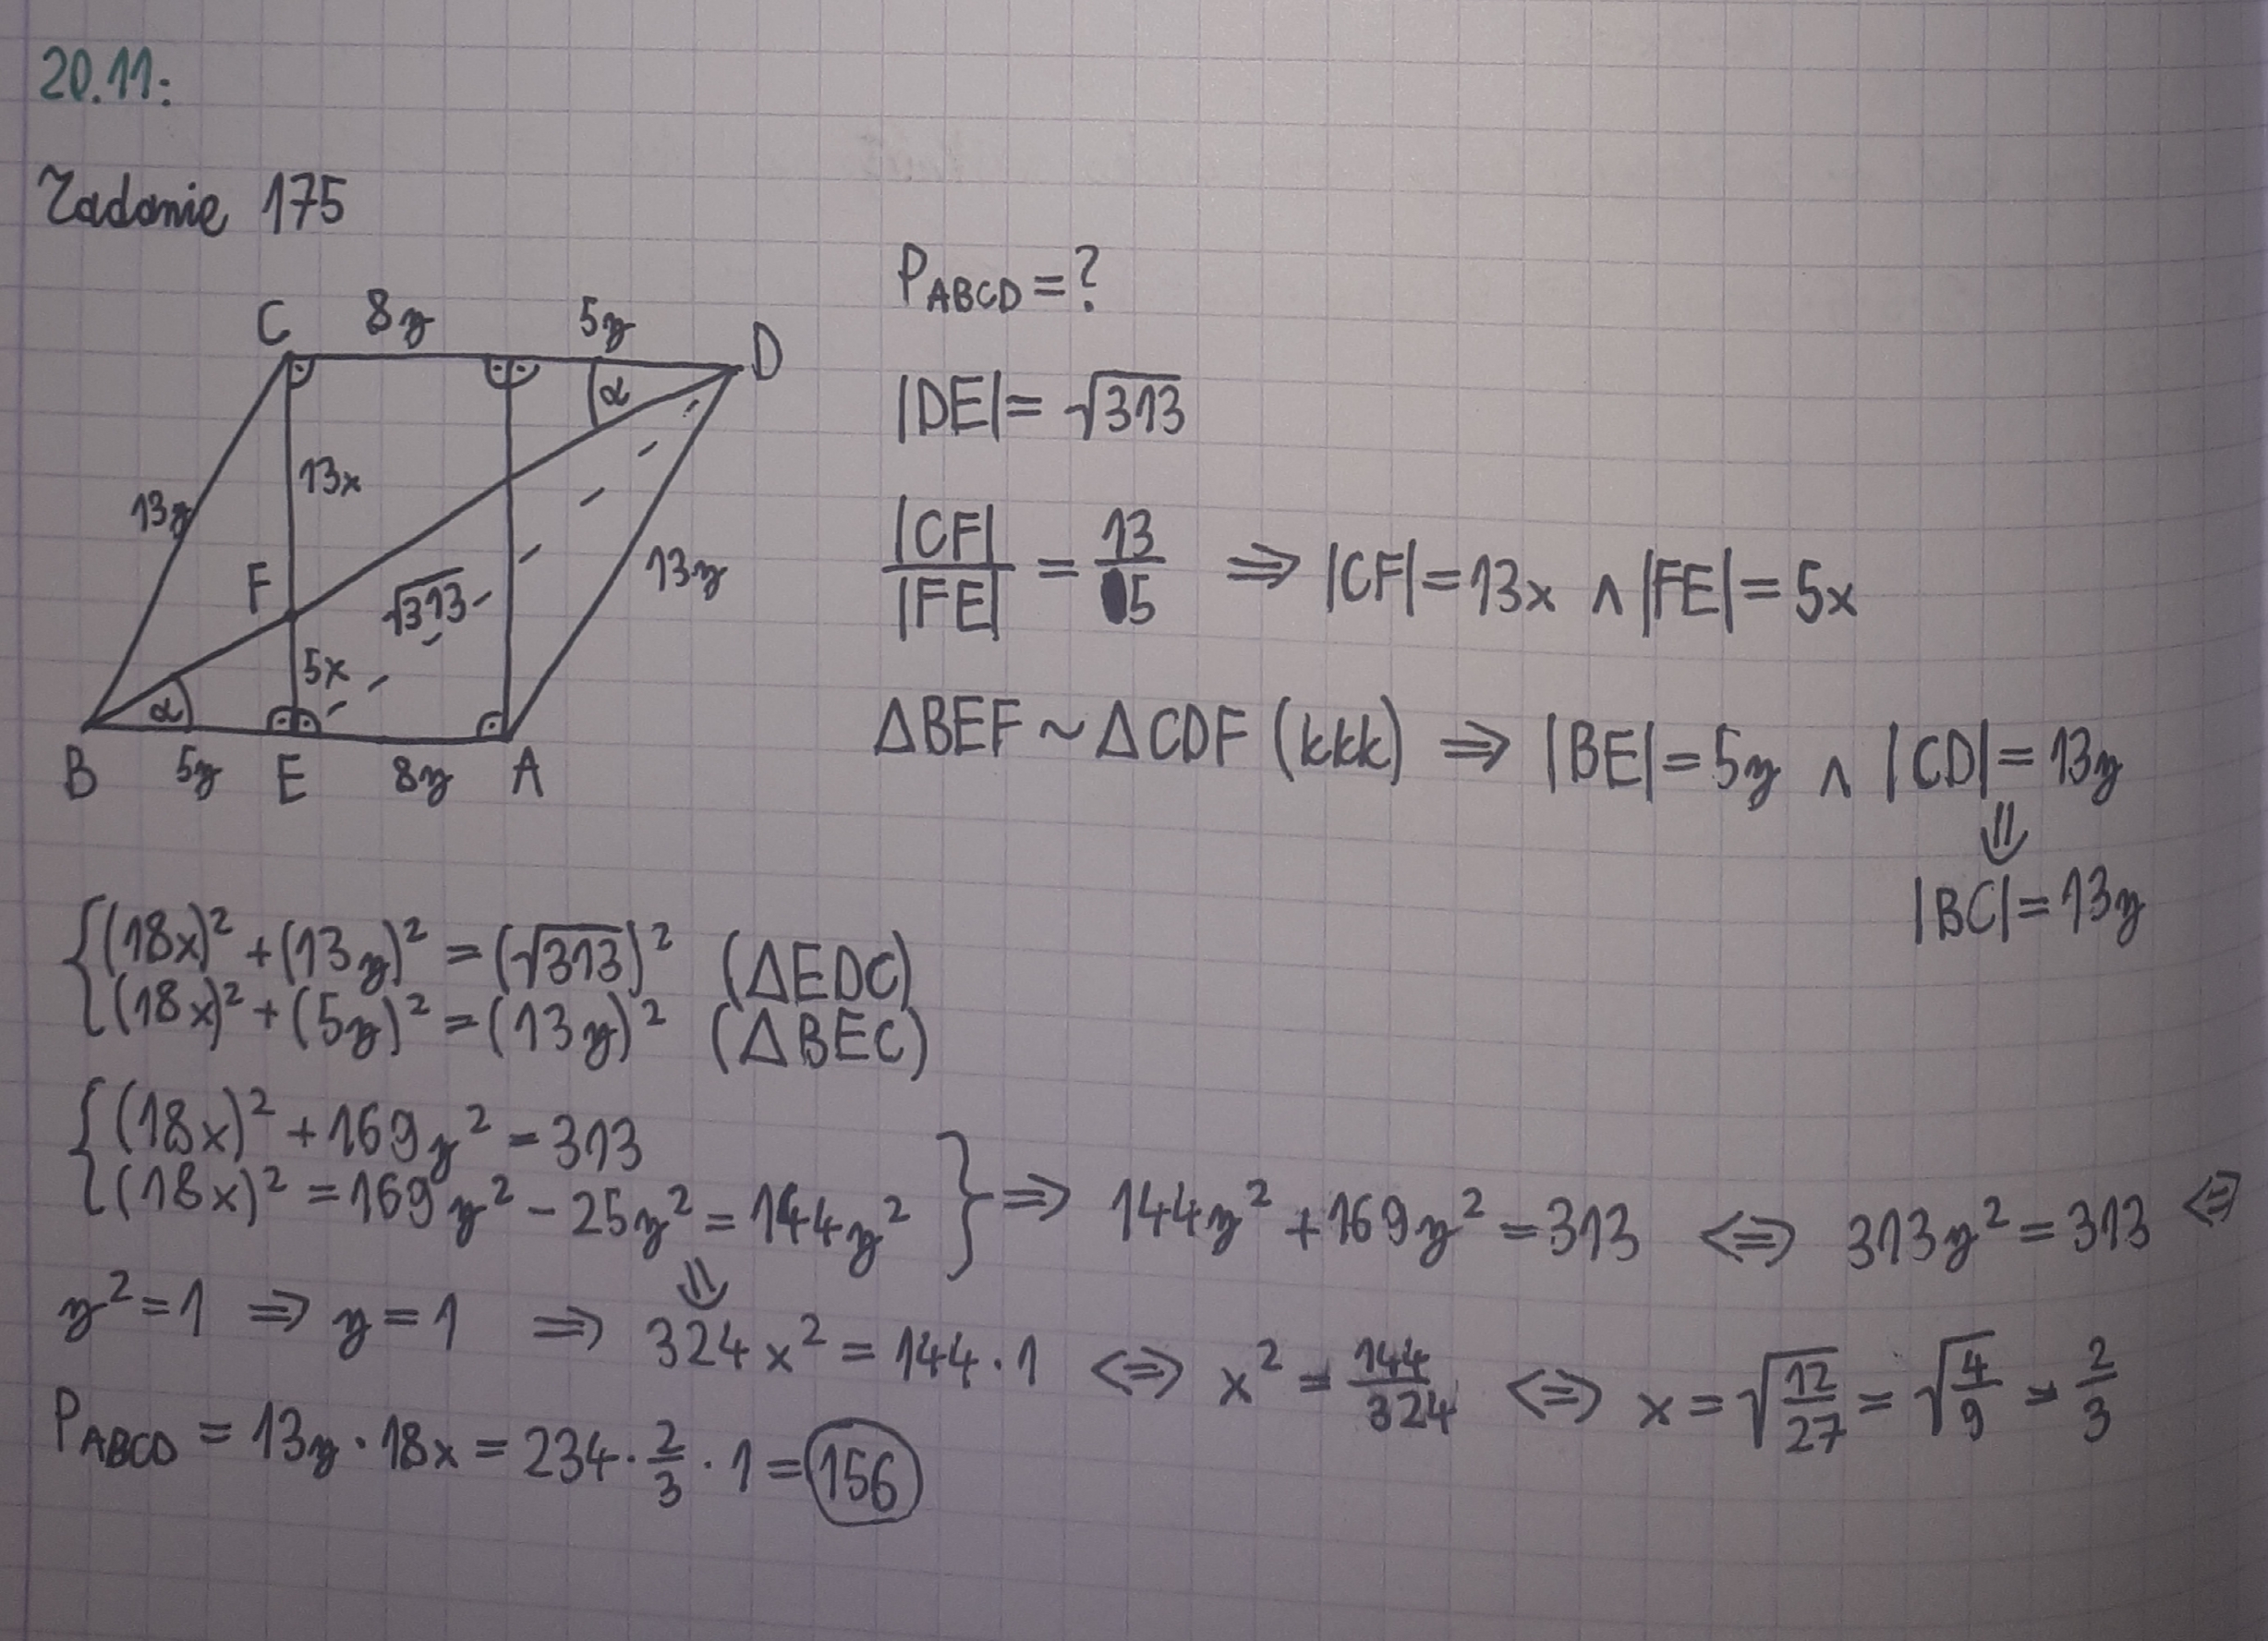 20.11:
Zadanie 175
C 8y 5y D
α
13y 13x
F √313 13y
5x
α
B 5y E 8y A
P_ABCD = ?
|DE| = √313
|CF|/|FE| = 13/5 ⇒ |CF| = 13x ∧ |FE| = 5x
ΔBEF ~ ΔCDF (kkk) ⇒ |BE| = 5y ∧ |CD| = 13y
⇓
|BC| = 13y
{ (18x)² + (13y)² = (√313)² (ΔEDC)
(18x)² + (5y)² = (13y)² (ΔBEC)
{ (18x)² + 169y² = 313
(18x)² = 169y² - 25y² = 144y² } ⇒ 144y² + 169y² = 313 ⇔ 313y² = 313 ⇔
⇓
y² = 1 ⇒ y = 1 ⇒ 324x² = 144 · 1 ⇔ x² = 144/324 ⇔ x = √(12/27) = √(4/9) = 2/3
P_ABCD = 13y · 18x = 234 · 2/3 · 1 = 156